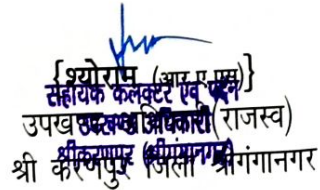 {श्योराम (आर.ए.एस)}
सहायक कलक्टर एवं पदेन
उपखण्ड अधिकारी (राजस्व)
उपखण्ड अधिकारी
श्री करणपुर जिला श्रीगंगानगर
श्रीकरणपुर (श्रीगंगानगर)